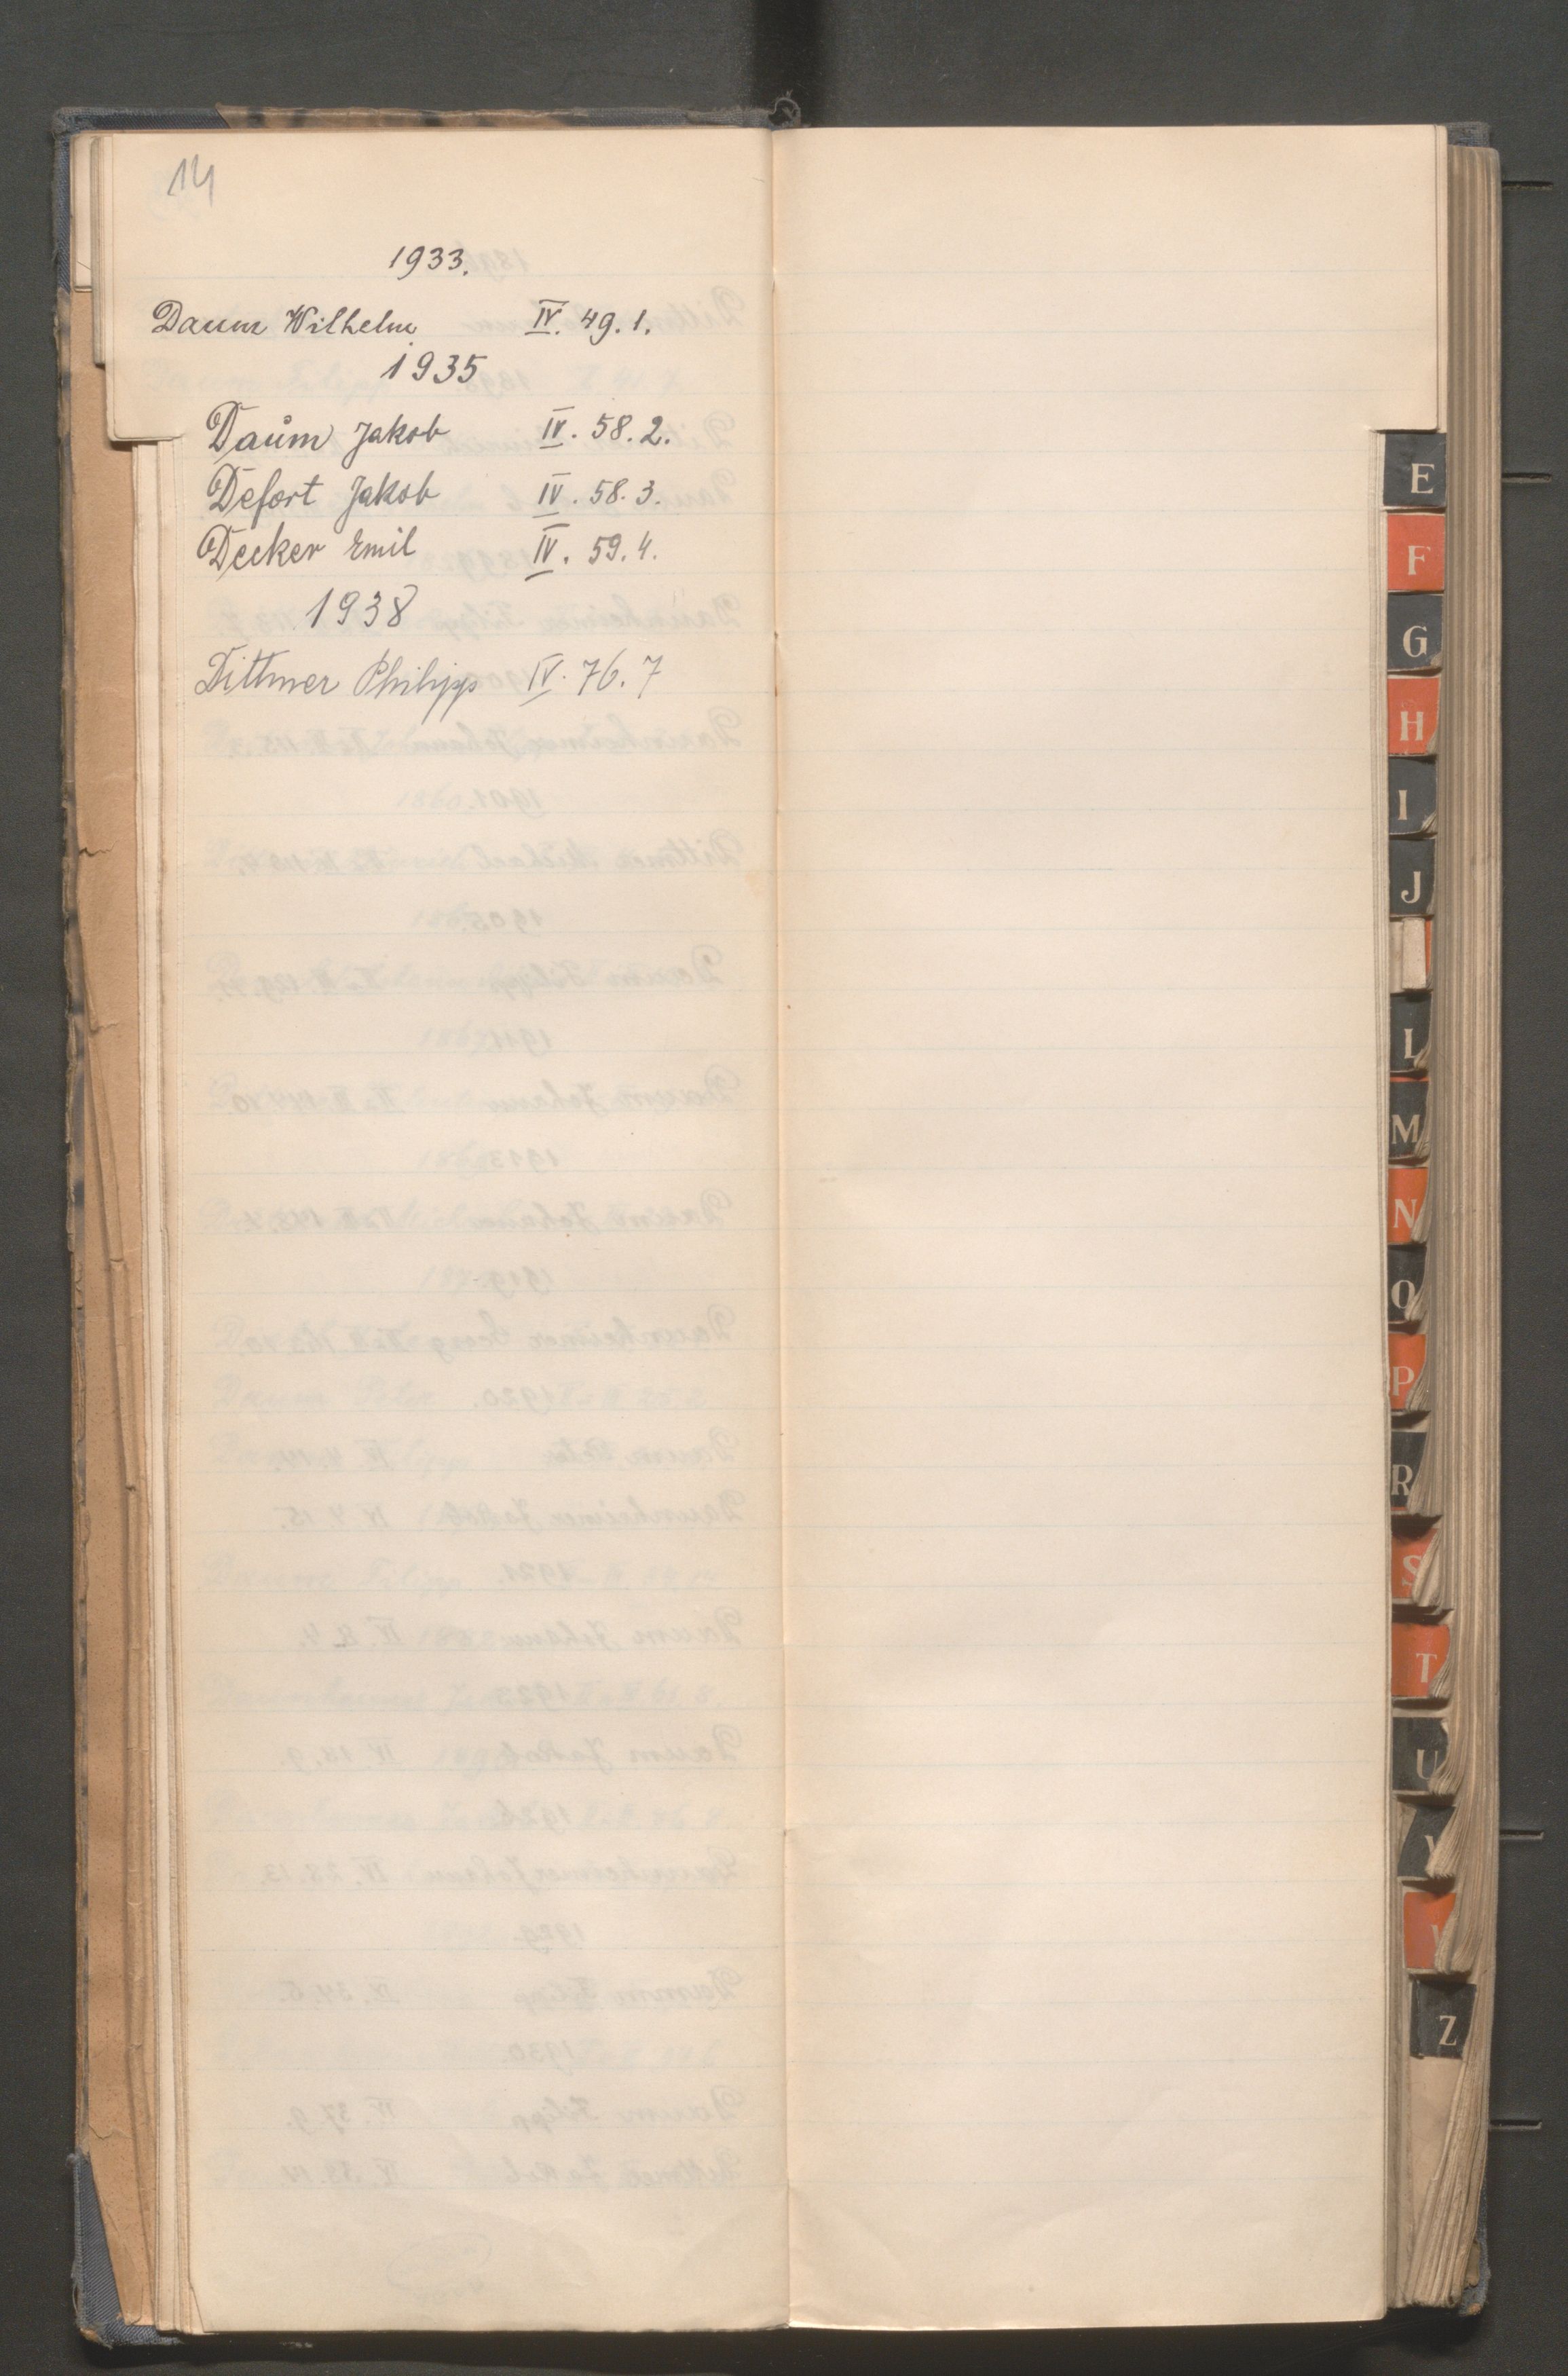 14
1933.
Daum Wilhelm IV. 49. 1.
1935
Daum Jakob IV. 58. 2.
Defort Jakob IV. 58. 3.
Decker Emil IV. 59. 4.
1938
Dittmer Philipp IV. 76. 7
E
F
G
H
I
J
L
M
N
O
P
R
S
T
U
Z